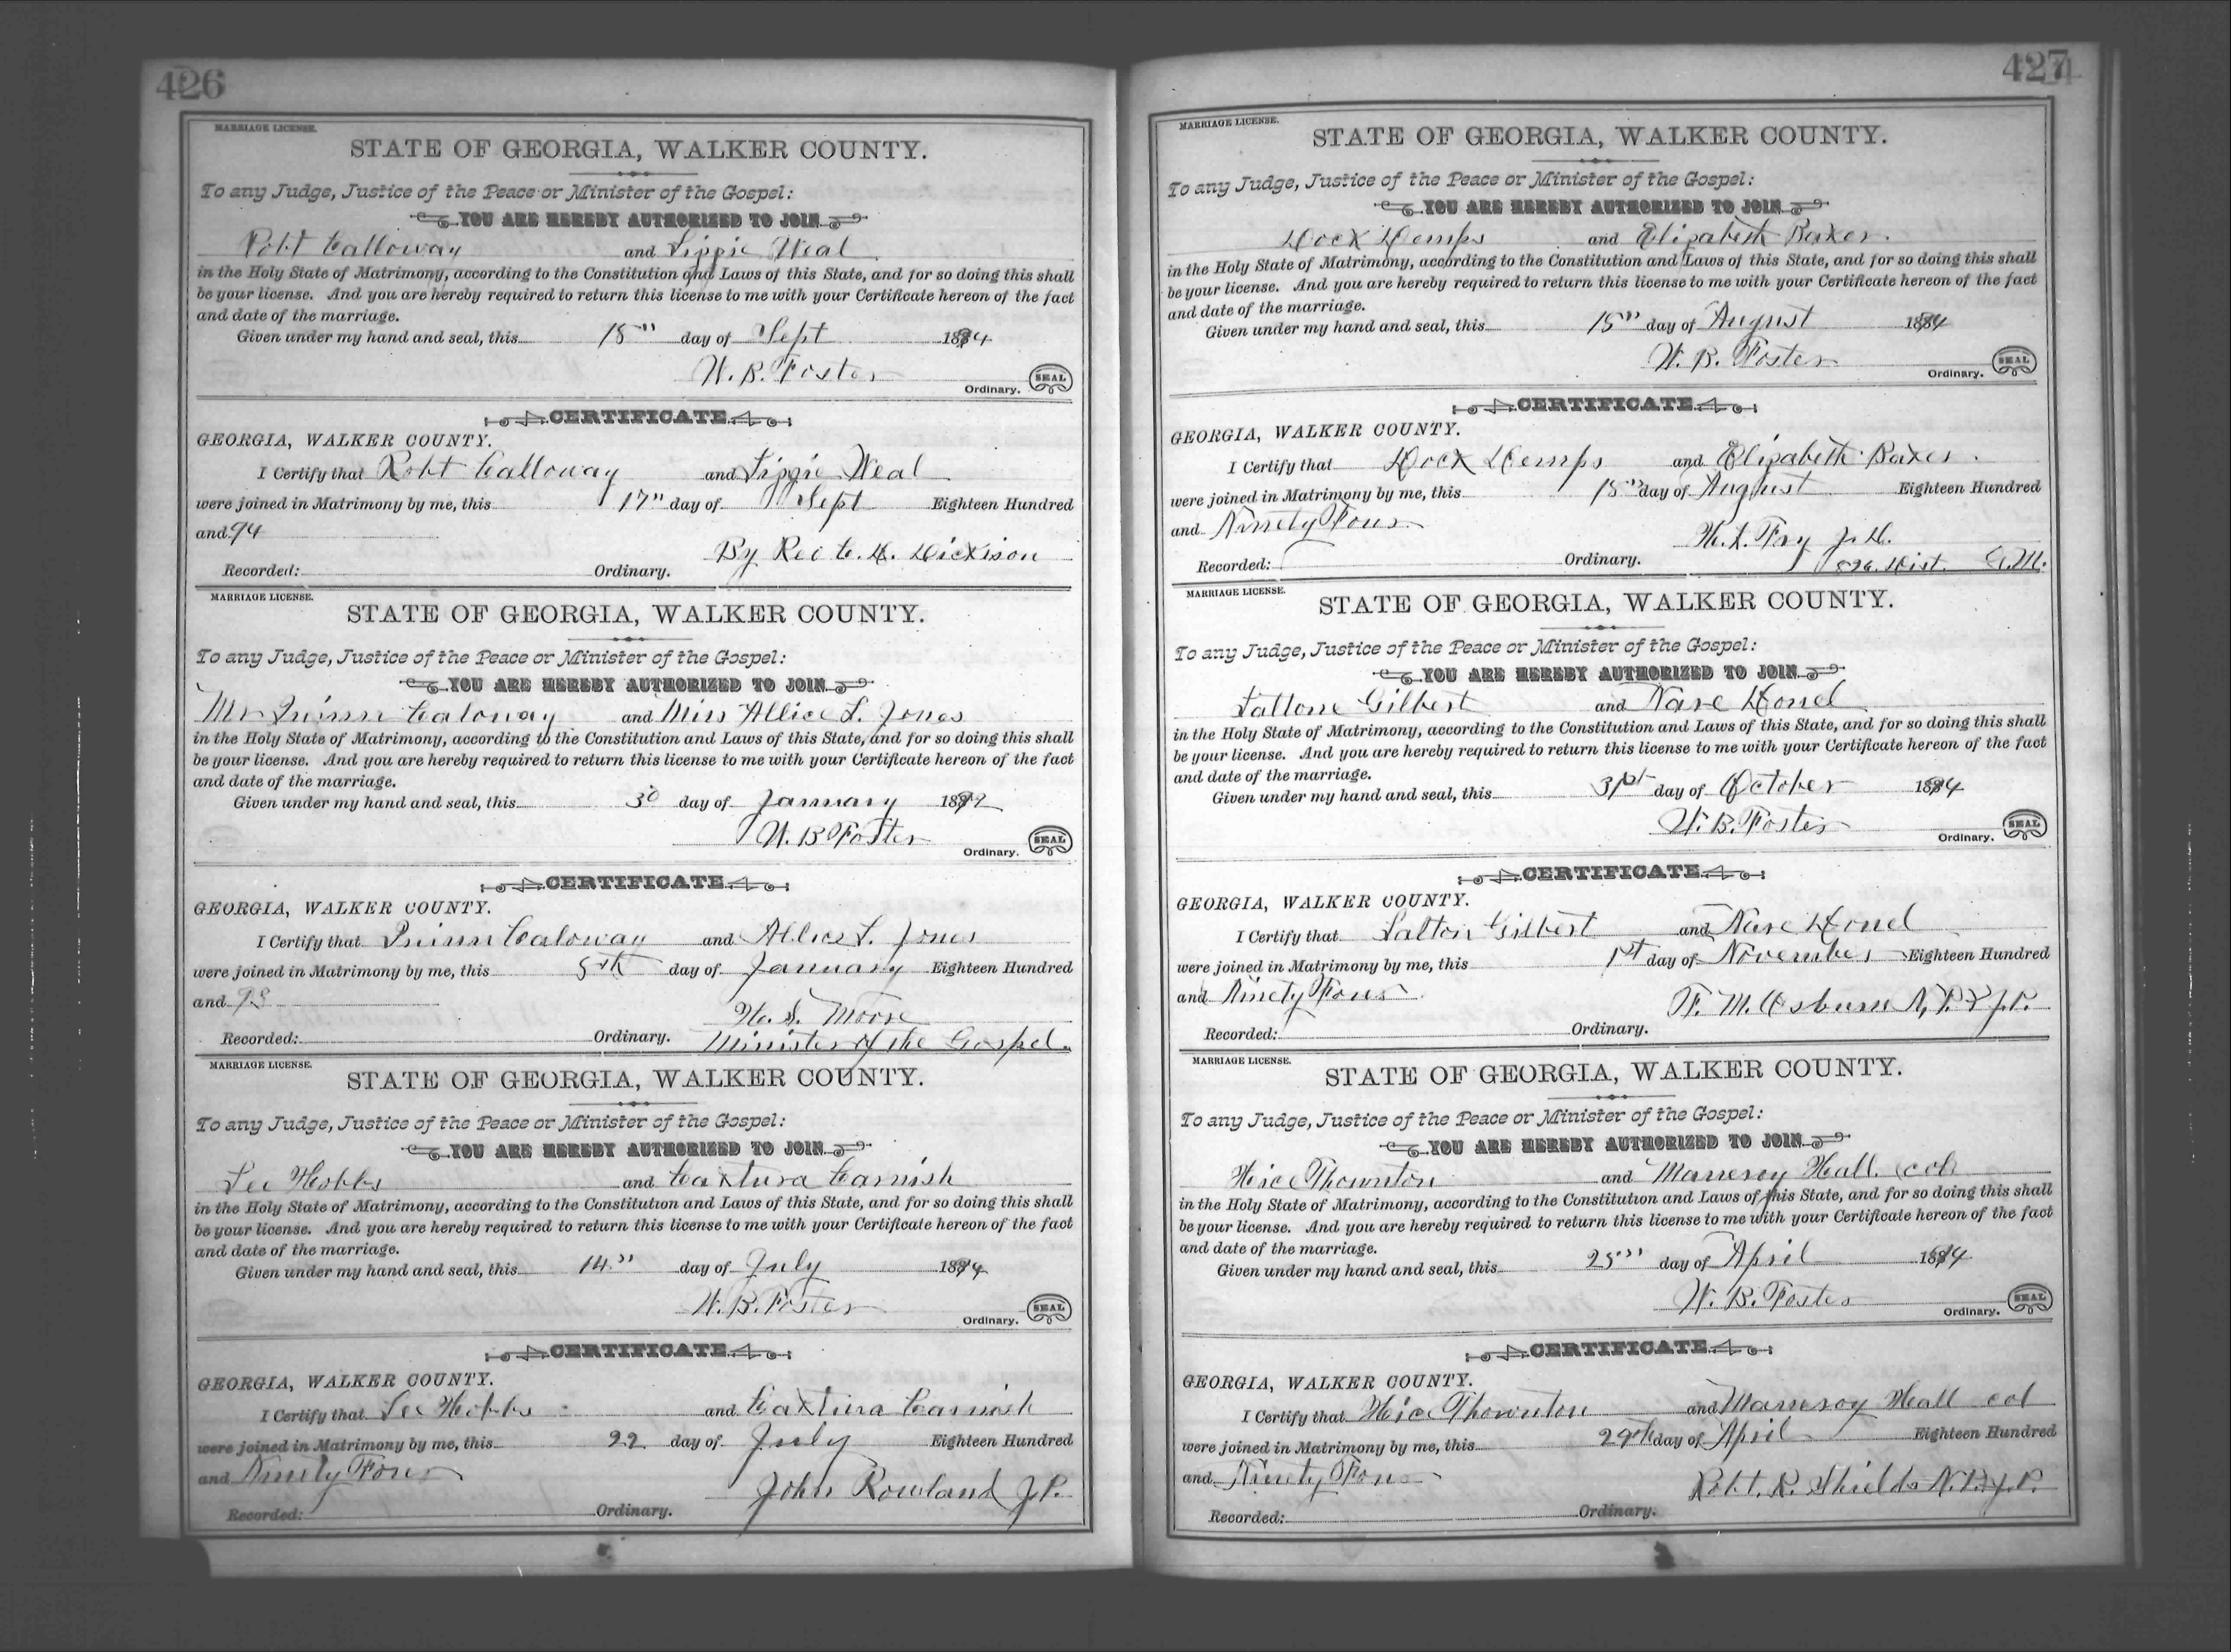 426
MARRIAGE LICENSE.
STATE OF GEORGIA, WALKER COUNTY.
To any Judge, Justice of the Peace or Minister of the Gospel:
YOU ARE HEREBY AUTHORIZED TO JOIN
Robt Calloway and Lizzie Neal
in the Holy State of Matrimony, according to the Constitution and Laws of this State, and for so doing this shall
be your license. And you are hereby required to return this license to me with your Certificate hereon of the fact
and date of the marriage.
Given under my hand and seal, this 15" day of Sept 1894
W. B. Foster
Ordinary. SEAL
CERTIFICATE
GEORGIA, WALKER COUNTY.
I Certify that Robt Calloway and Lizzie Neal
were joined in Matrimony by me, this 17" day of Sept Eighteen Hundred
and 94
By Rev C. H. Dickison
Recorded: Ordinary.
MARRIAGE LICENSE.
STATE OF GEORGIA, WALKER COUNTY.
To any Judge, Justice of the Peace or Minister of the Gospel:
YOU ARE HEREBY AUTHORIZED TO JOIN
Mr Quinn Caloway and Miss Allice L. Jones
in the Holy State of Matrimony, according to the Constitution and Laws of this State, and for so doing this shall
be your license. And you are hereby required to return this license to me with your Certificate hereon of the fact
and date of the marriage.
Given under my hand and seal, this 30 day of January 1892
W. B Foster
Ordinary. SEAL
CERTIFICATE
GEORGIA, WALKER COUNTY.
I Certify that Quinn Caloway and Allice L. Jones
were joined in Matrimony by me, this 5th day of January Eighteen Hundred
and
W. S. Moore
Recorded: Ordinary. Minister of the Gospel.
MARRIAGE LICENSE.
STATE OF GEORGIA, WALKER COUNTY.
To any Judge, Justice of the Peace or Minister of the Gospel:
YOU ARE HEREBY AUTHORIZED TO JOIN
Lee Hobbs and Camish
in the Holy State of Matrimony, according to the Constitution and Laws of this State, and for so doing this shall
be your license. And you are hereby required to return this license to me with your Certificate hereon of the fact
and date of the marriage.
Given under my hand and seal, this 14" day of July 1894
W. B. Foster
Ordinary. SEAL
CERTIFICATE
GEORGIA, WALKER COUNTY.
I Certify that Lee Hobbs and Camish
were joined in Matrimony by me, this 22 day of July Eighteen Hundred
and Ninety Four
John Rowland J.P.
Recorded: Ordinary.
427
MARRIAGE LICENSE.
STATE OF GEORGIA, WALKER COUNTY.
To any Judge, Justice of the Peace or Minister of the Gospel:
YOU ARE HEREBY AUTHORIZED TO JOIN
Dock Demps and Elizabeth Baker.
in the Holy State of Matrimony, according to the Constitution and Laws of this State, and for so doing this shall
be your license. And you are hereby required to return this license to me with your Certificate hereon of the fact
and date of the marriage.
Given under my hand and seal, this 15" day of August 1894
W. B. Foster
Ordinary. SEAL
CERTIFICATE
GEORGIA, WALKER COUNTY.
I Certify that Dock Demps and Elizabeth Baker.
were joined in Matrimony by me, this 15" day of August Eighteen Hundred
and Ninety Four
Fry
Recorded: Ordinary. Dist. G.M.
MARRIAGE LICENSE.
STATE OF GEORGIA, WALKER COUNTY.
To any Judge, Justice of the Peace or Minister of the Gospel:
YOU ARE HEREBY AUTHORIZED TO JOIN
Gilbert and
in the Holy State of Matrimony, according to the Constitution and Laws of this State, and for so doing this shall
be your license. And you are hereby required to return this license to me with your Certificate hereon of the fact
and date of the marriage.
Given under my hand and seal, this 31st day of October 1894
W. B. Foster
Ordinary. SEAL
CERTIFICATE
GEORGIA, WALKER COUNTY.
I Certify that Gilbert and
were joined in Matrimony by me, this 1st day of November Eighteen Hundred
and Ninety Four
F. M. Osburn N.P. & J.P.
Recorded: Ordinary.
MARRIAGE LICENSE.
STATE OF GEORGIA, WALKER COUNTY.
To any Judge, Justice of the Peace or Minister of the Gospel:
YOU ARE HEREBY AUTHORIZED TO JOIN
Thornton and Hall col
in the Holy State of Matrimony, according to the Constitution and Laws of this State, and for so doing this shall
be your license. And you are hereby required to return this license to me with your Certificate hereon of the fact
and date of the marriage.
Given under my hand and seal, this 25" day of April 1894
W. B. Foster
Ordinary. SEAL
CERTIFICATE
GEORGIA, WALKER COUNTY.
I Certify that Thornton and Hall col
were joined in Matrimony by me, this 29th day of April Eighteen Hundred
and Ninety Four
Robt. R. Shields N.P. J.P.
Recorded: Ordinary.